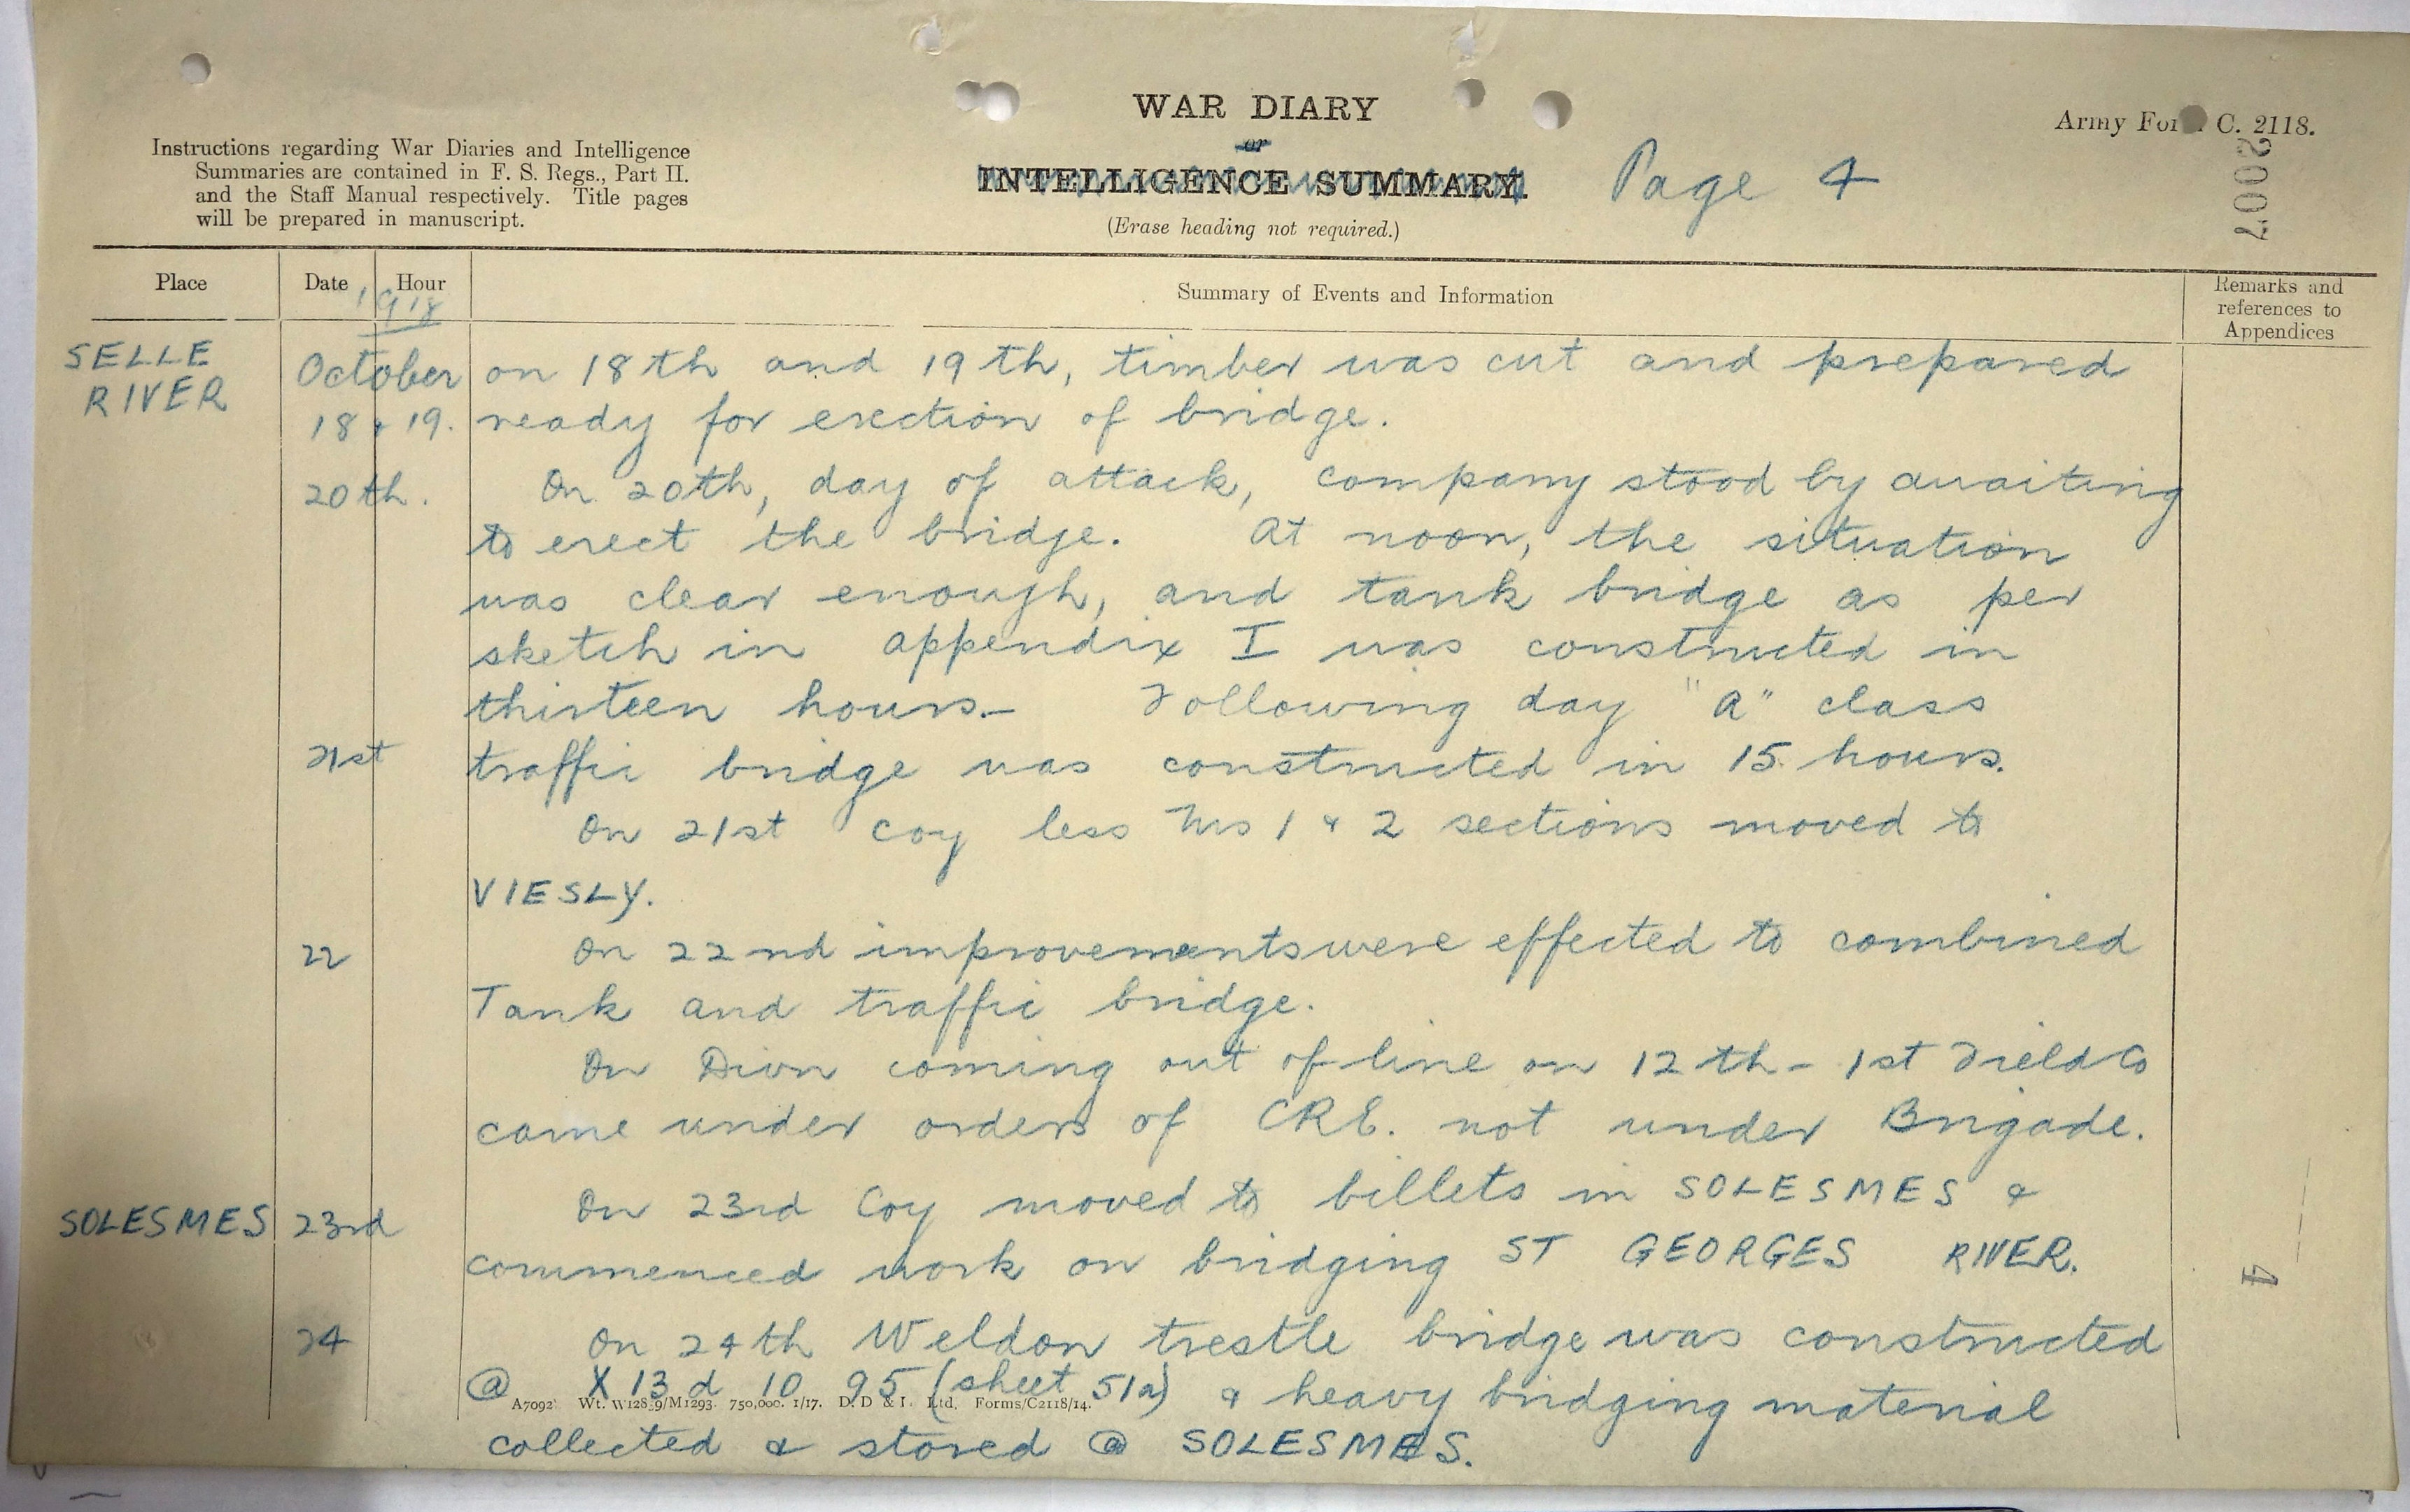 WAR DIARY
or
INTELLIGENCE SUMMARY.
(Erase heading not required.)
Page 4
Army Form C. 2118.
2007
Instructions regarding War Diaries and Intelligence
Summaries are contained in F. S. Regs., Part II.
and the Staff Manual respectively. Title pages
will be prepared in manuscript.
Place Date Hour Summary of Events and Information Remarks and references to Appendices
1918
SELLE RIVER October on 18th and 19th, timber was cut and prepared
18 & 19. ready for erection of bridge.
20th. On 20th, day of attack, company stood by awaiting
to erect the bridge. At noon, the situation
was clear enough, and tank bridge as per
sketch in appendix I was constructed in
thirteen hours.- Following day "A" class
21st traffic bridge was constructed in 15 hours.
On 21st coy less Nos 1 & 2 sections moved to
VIESLY.
22 On 22nd improvements were effected to combined
Tank and traffic bridge.
On Divn coming out of line on 12th - 1st Field Co
came under orders of CRE. not under Brigade.
SOLESMES 23rd On 23rd Coy moved to billets in SOLESMES &
commenced work on bridging ST GEORGES RIVER.
24 On 24th Weldon trestle bridge was constructed
@ X 13 d 10 95 (sheet 51a) & heavy bridging material
A7092. Wt. W1289/M1293. 750,000. 1/17. D. D & L. Ltd. Forms/C2118/14.
collected & stored @ SOLESMES.
4